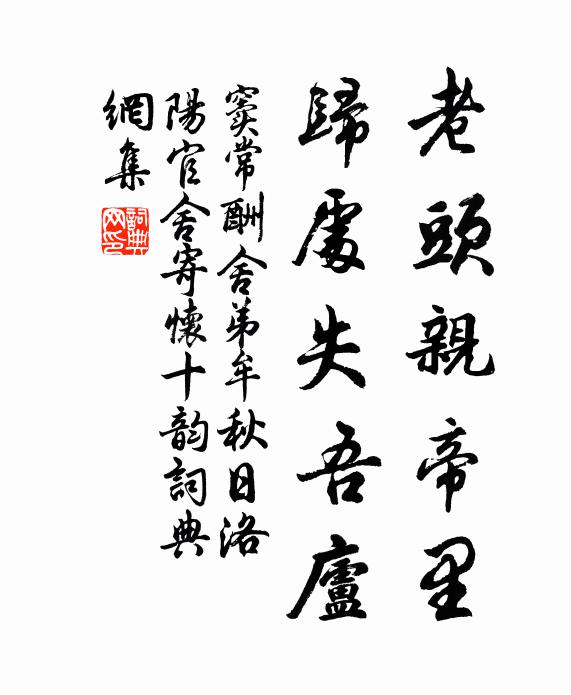 老頭親帝里
歸處失吾廬
窦常酬舍弟牟秋日洛
陽官舍寄懷十韵詞典
網集
詞典网印